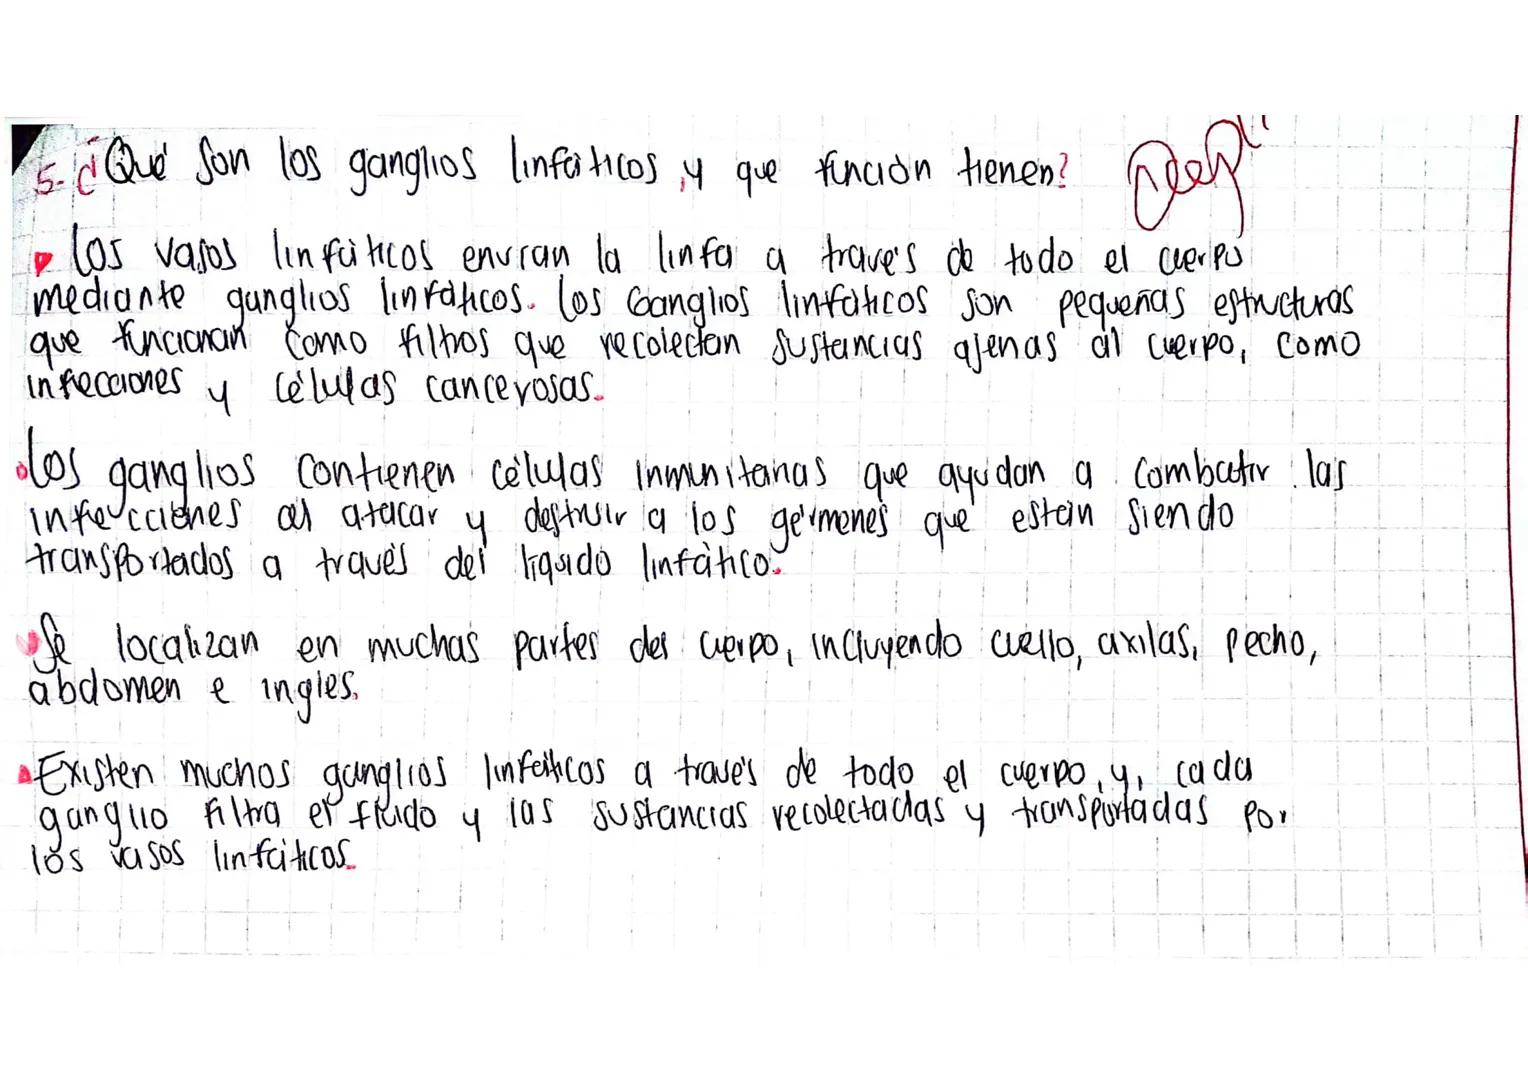 5- ¿Qué Son los ganglios linfáticos, y que función tienen?
Los vasos linfáticos envían la linfa a través de todo el cuerpo
mediante ganglios linfáticos. Los Ganglios linfáticos son pequeñas estructuras
que funcionan como filtros que recolectan sustancias ajenas al cuerpo, como
infecciones y células cancerosas.
Los ganglios contienen células inmunitarias que ayudan a combatir las
infecciones al atacar y destruir a los gérmenes que están siendo
transportados a través del líquido linfático.
Se localizan en muchas partes del cuerpo, incluyendo cuello, axilas, pecho,
abdomen e ingles.
Existen muchos ganglios linfáticos a través de todo el cuerpo, y, cada
ganglio filtra el fluido y las sustancias recolectadas y transportadas por
los vasos linfáticos.